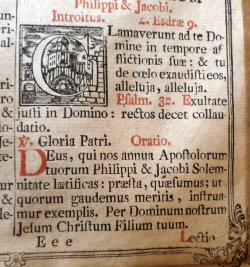 Philippi & Jacobi.
Introitus. 2. Esdræ 9.
CLamaverunt ad te Do-
mine in tempore af
flictionis suæ: & tu
de cœlo exaudisti eos,
alleluja, alleluja.
Psalm. 32. Exultate
justi in Domino: rectos decet collau-
datio.
℣. Gloria Patri. Oratio.
DEus, qui nos annua Apostolorum
tuorum Philippi & Jacobi Solem-
nitate lætificas: præsta, quæsumus; ut
quorum gaudemus meritis, instrua-
mur exemplis. Per Dominum nostrum
Jesum Christum Filium tuum.
E e e Lectio